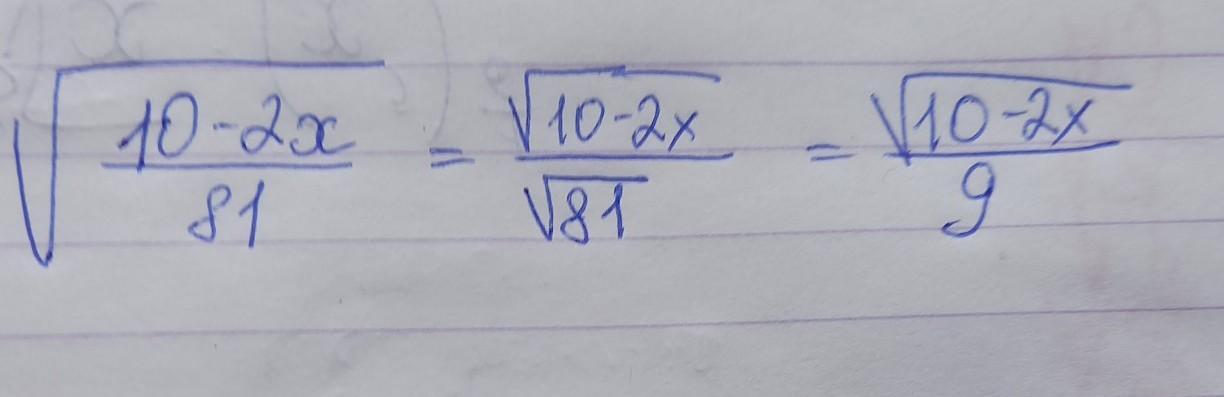 √((10-2x)/81) = √(10-2x)/√81 = √(10-2x)/9